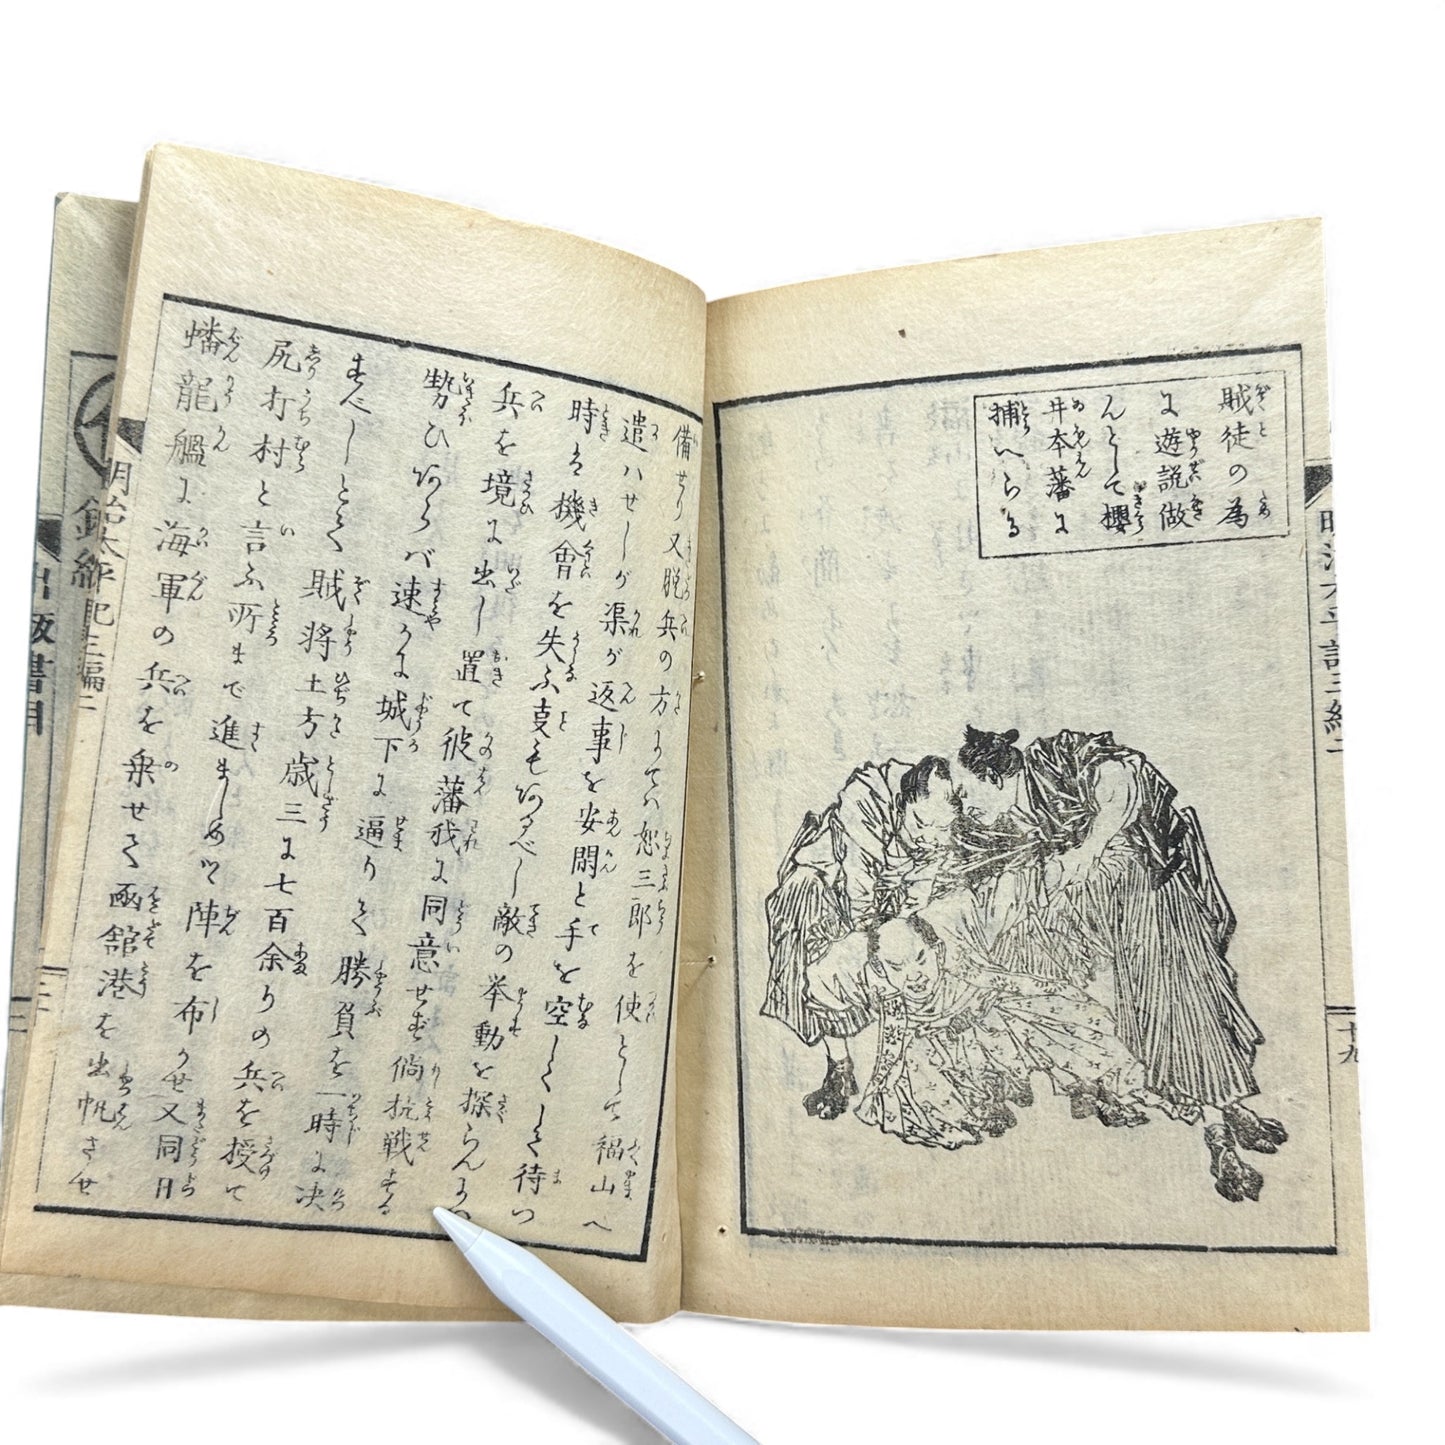 賊徒の為
に遊説做
んとして櫻
井本藩に
捕へらる
明治太平記三編二
十九
備せり又脱兵の方にてハ恕三郎を使として福山へ
遣ハせしが渠が返事を安閑と手を空しくして待つ
時は機會を失ふ支もあるべし敵の挙動を探らんにハ
兵を境に出し置て彼藩我に同意せず倘抗戦する
勢ひあらバ速かに城下に逼りて勝負を一時に决
すべしとて賊将土方歳三に七百余りの兵を授て
尻打村と言ふ所まで進ましめツ陣を布かせ又同日
蟠龍艦に海軍の兵を乗せて函舘港を出帆させ
明治太平記三編二
出版書目